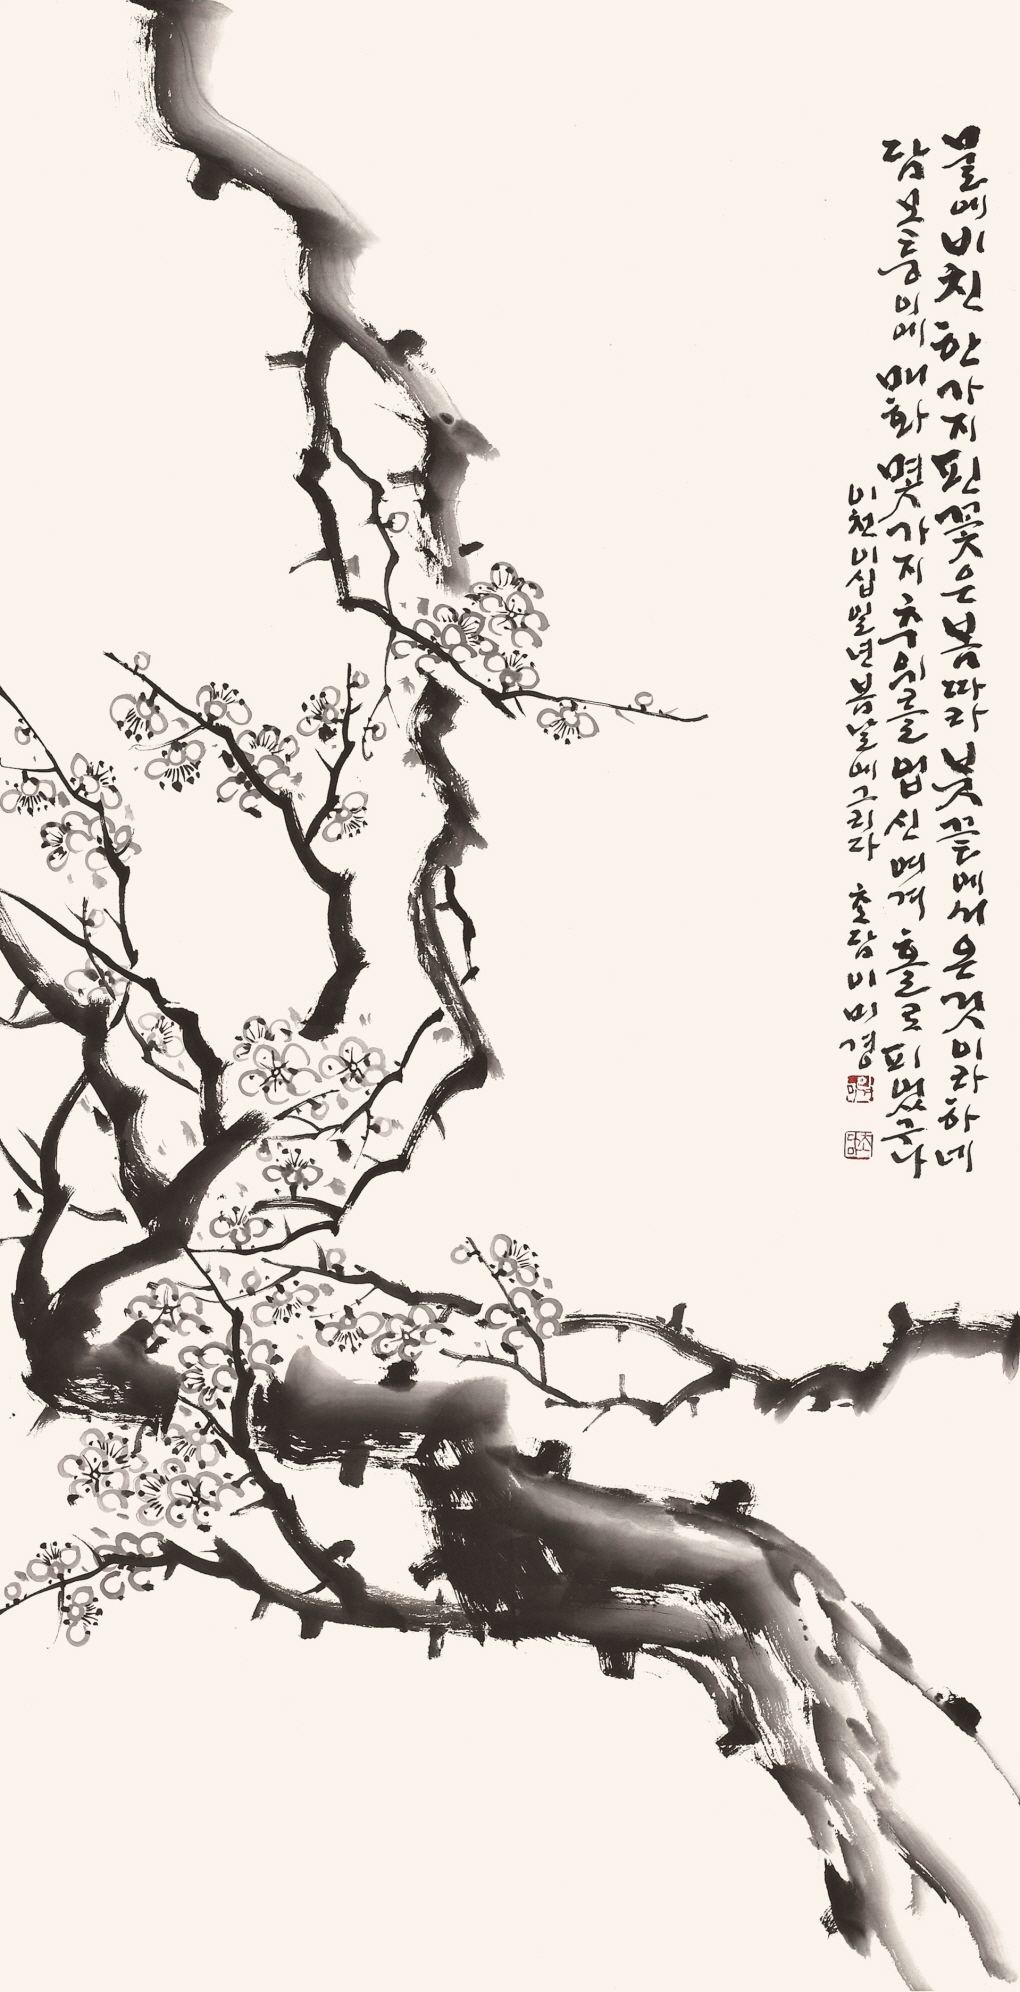 물에 비친 한 가지 핀 꽃은 봄따라 붓끝에서 온 것이라 하네
담 모퉁이에 매화 몇 가지 추위를 업신여겨 홀로 피었구나
이천이십일년 봄날에 그리다 초담 이미경